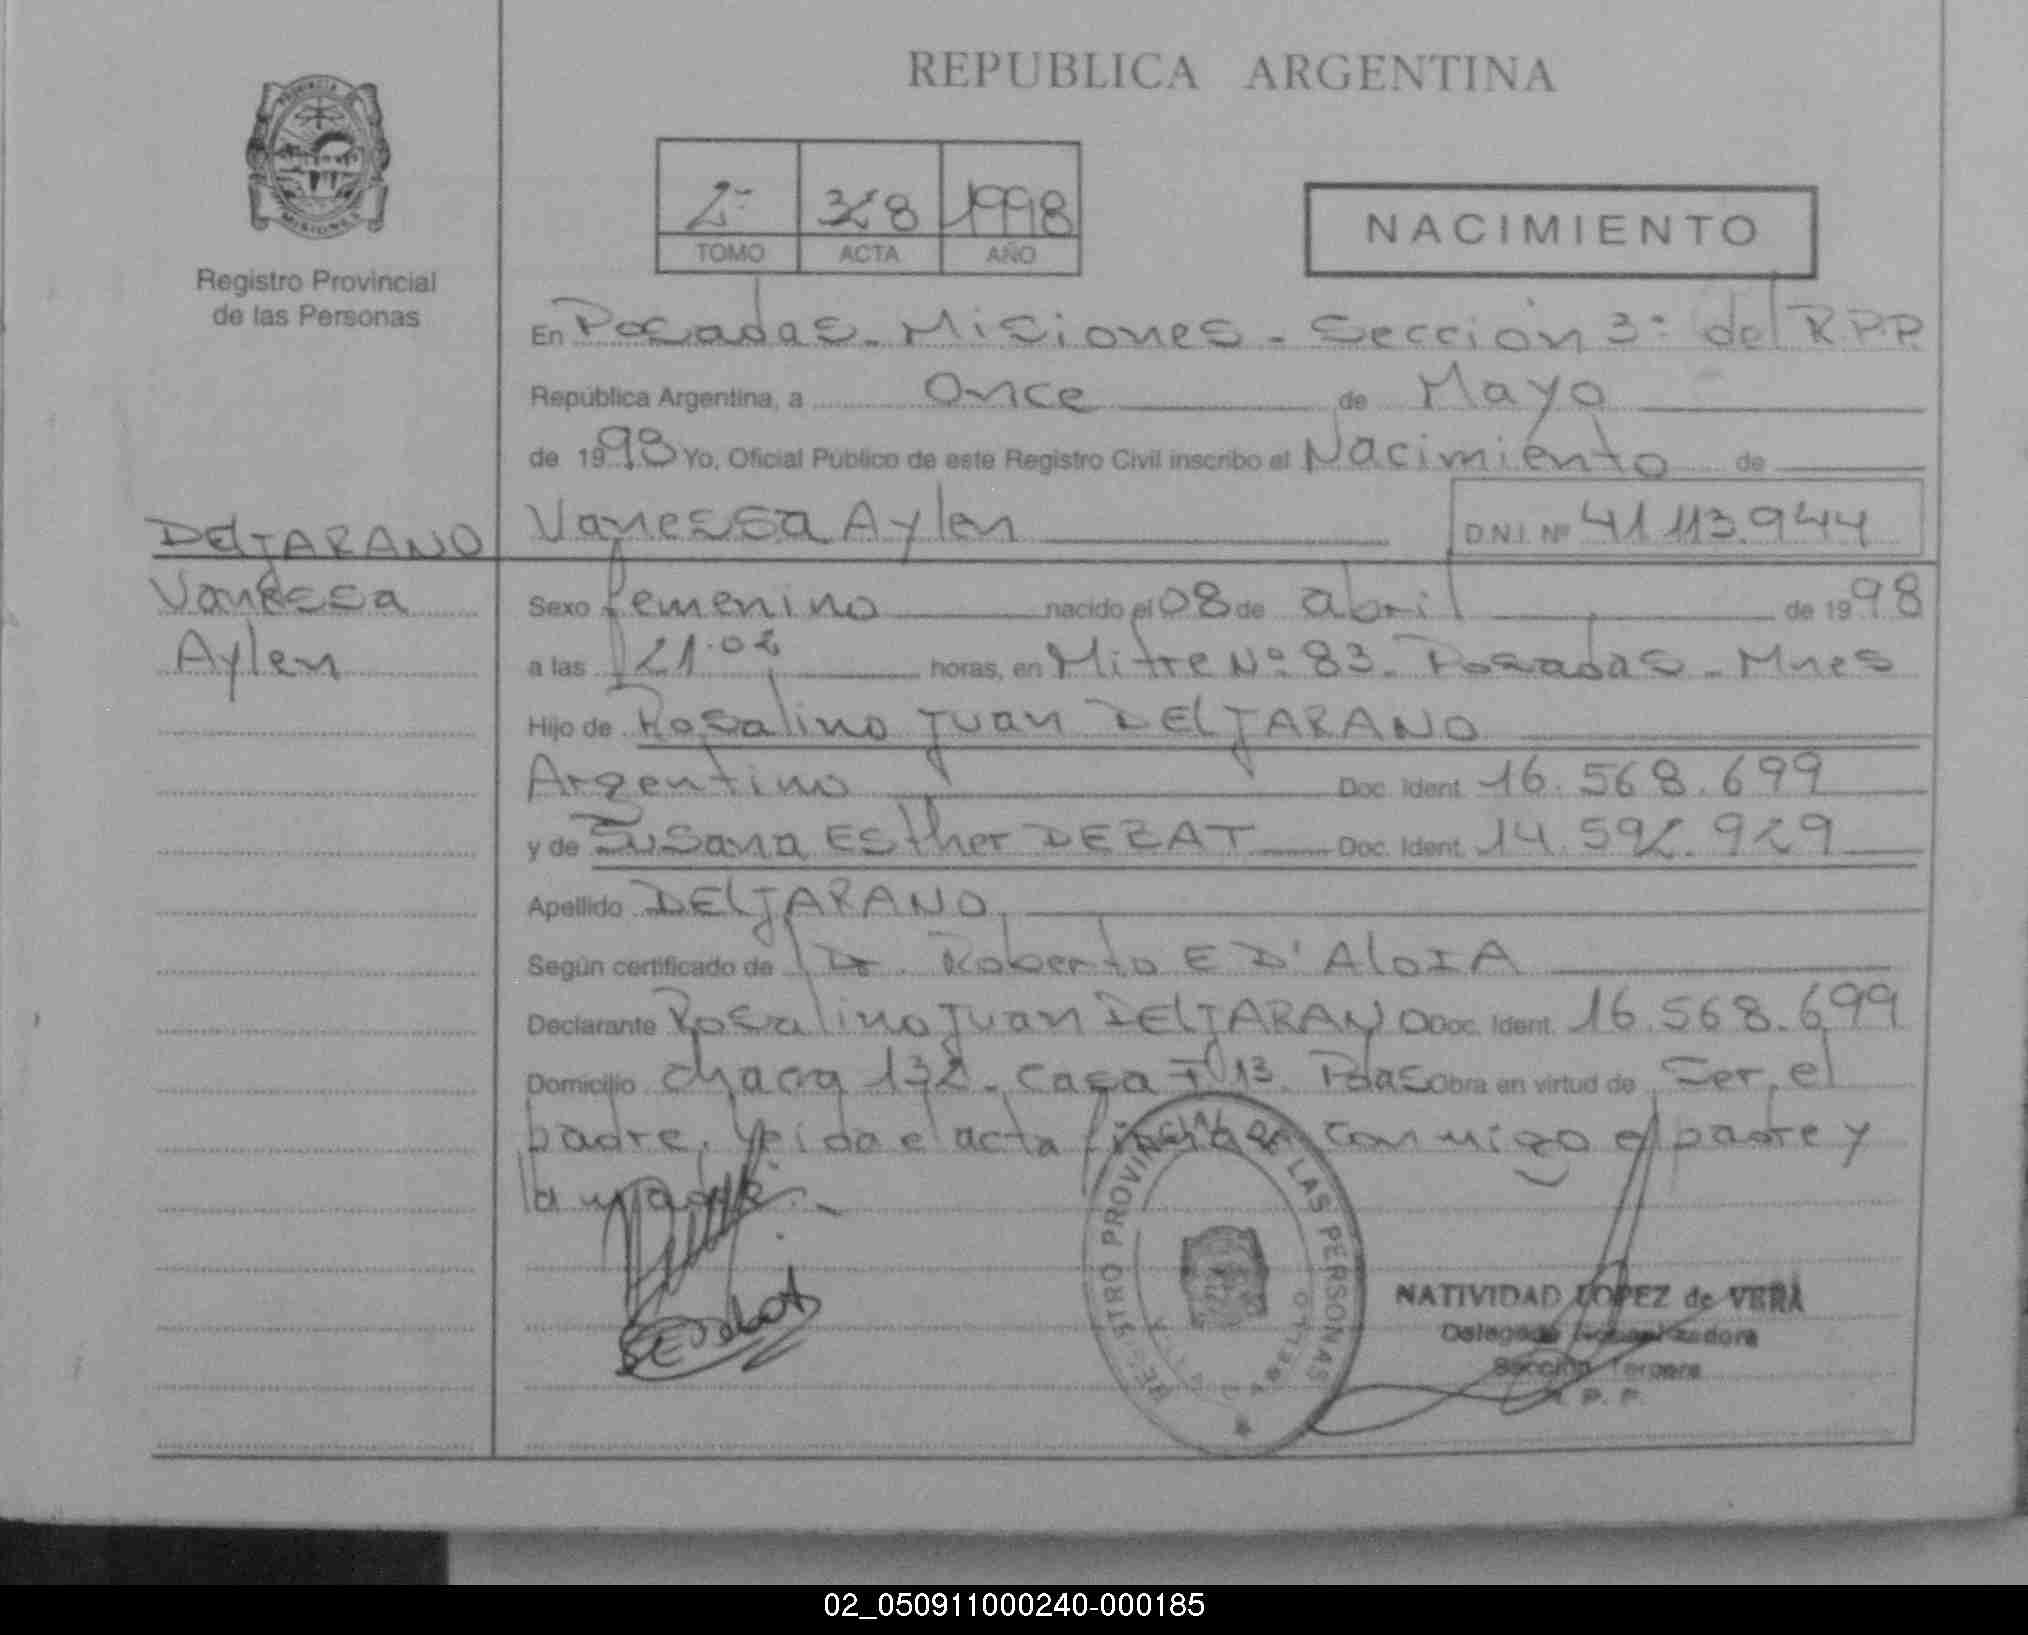 REPUBLICA ARGENTINA
PROVINCIA DE
MISIONES
Registro Provincial
de las Personas
2º 328 1998
TOMO ACTA AÑO
NACIMIENTO
En Posadas - Misiones - Sección 3º del R.P.P.
República Argentina, a Once de Mayo
de 1998 Yo, Oficial Público de este Registro Civil inscribo el Nacimiento de
Vanessa Aylen D.N.I. Nº 41.113.944
DELJARANO
Vanessa
Aylen
Sexo femenino nacido el 08 de abril de 1998
a las 21.02 horas, en Mitre Nº 83 - Posadas - Mnes
Hijo de Rosalino Juan DELJARANO
Argentino Doc. Ident. 16.568.699
y de Susana Esther DEZAT Doc. Ident. 14.592.929
Apellido DELJARANO
Según certificado de Dr. Roberto E D'AloIA
Declarante Rosalino Juan DELJARANO Doc. Ident. 16.568.699
Domicilio chacra 132 - casa 13 Pdas Obra en virtud de Ser el
padre. leída el acta firma conmigo el padre y
la madre.-
REGISTRO PROVINCIAL DE LAS PERSONAS
NATIVIDAD LOPEZ de VERA
Delegada
Sección Tercera
R. P. P.
02_050911000240-000185